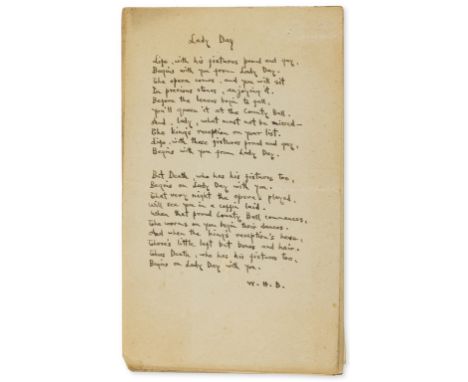 Lady Day
Life, with his fixtures proud and gay,
Begins with you from Lady Day.
The opera comes, and you will sit
In precious stones, enjoying it.
Before the leaves begin to fall,
You'll grace it at the County Ball.
And, lady, what must not be missed—
The King's reception on your list.
Life, with these fixtures proud and gay,
Begins with you from Lady Day.
But Death, who has his fixtures too,
Begins on Lady Day with you.
That very night the opera's played,
Will see you in a coffin laid.
When that proud County Ball commences,
The worms on you begin their dances.
And when the King's reception's here,
There's little left but bones and hair.
Thus Death, who has his fixtures too,
Begins on Lady Day with you.
W. H. D.